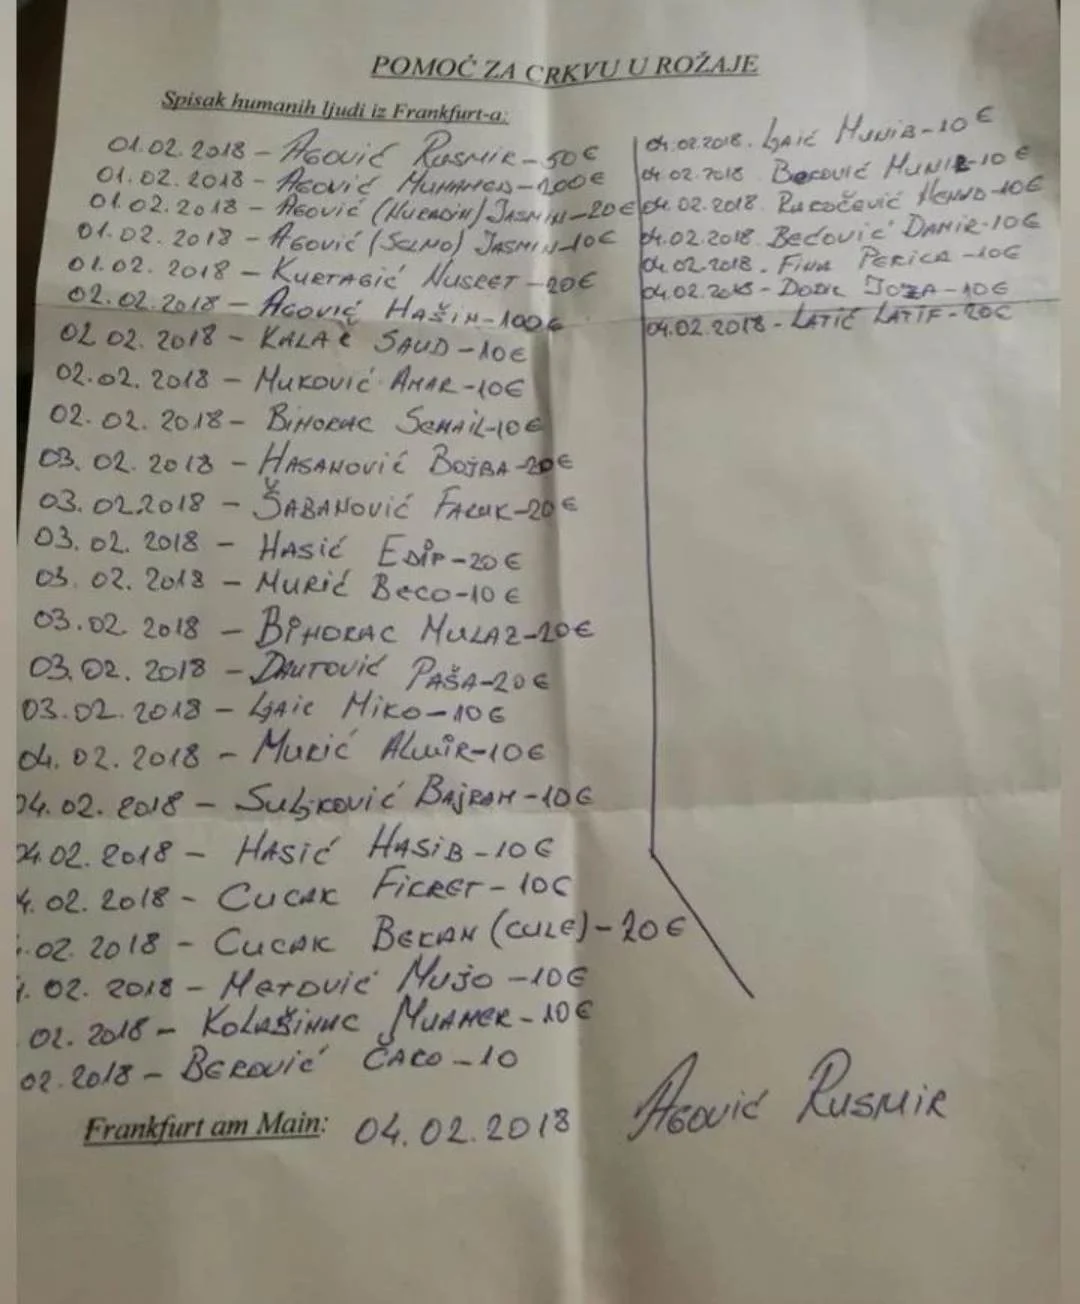 POMOĆ ZA CRKVU U ROŽAJE
Spisak humanih ljudi iz Frankfurt-a:
01.02.2018 - AGOVIĆ RUSMIR - 50€
01.02.2018 - AGOVIĆ MUHAMED - 200€
01.02.2018 - AGOVIĆ (NURADIN) JASMIN - 20€
01.02.2018 - AGOVIĆ (SELMO) JASMIN - 10€
01.02.2018 - KURTAGIĆ NUSRET - 20€
02.02.2018 - AGOVIĆ HAŠIM - 100€
02.02.2018 - KALAČ SAUD - 10€
02.02.2018 - MUKOVIĆ AMAR - 10€
02.02.2018 - BIHORAC SEMAIL - 10€
03.02.2018 - HASANOVIĆ BOJBA - 20€
03.02.2018 - ŠABANOVIĆ FARUK - 20€
03.02.2018 - HASIĆ EDIP - 20€
03.02.2018 - MURIĆ BECO - 10€
03.02.2018 - BIHORAC MULAZ - 20€
03.02.2018 - DAUTOVIĆ PAŠA - 20€
03.02.2018 - LJAIC MIKO - 10€
04.02.2018 - MURIĆ ALMIR - 10€
04.02.2018 - SULJKOVIĆ BAJRAM - 10€
04.02.2018 - HASIĆ HASIB - 10€
4.02.2018 - CUCAK FIKRET - 10€
.02.2018 - CUCAK BEKAN (CULE) - 20€
.02.2018 - METOVIĆ MUJO - 10€
02.2018 - KOLAŠINAC MUAMER - 10€
02.2018 - BEROVIĆ ČAKO - 10
04.02.2018. LJAIĆ MUNIB - 10€
04.02.2018 BECOVIĆ MUNIR - 10€
04.02.2018. RAKOČEVIĆ - 10€
04.02.2018. BEĆOVIĆ DAMIR - 10€
04.02.2018. FINA PERICA - 10€
04.02.2018 - JOZA - 10€
04.02.2018 - LATIĆ LATIF - 20€
Frankfurt am Main: 04.02.2018
AGOVIĆ RUSMIR